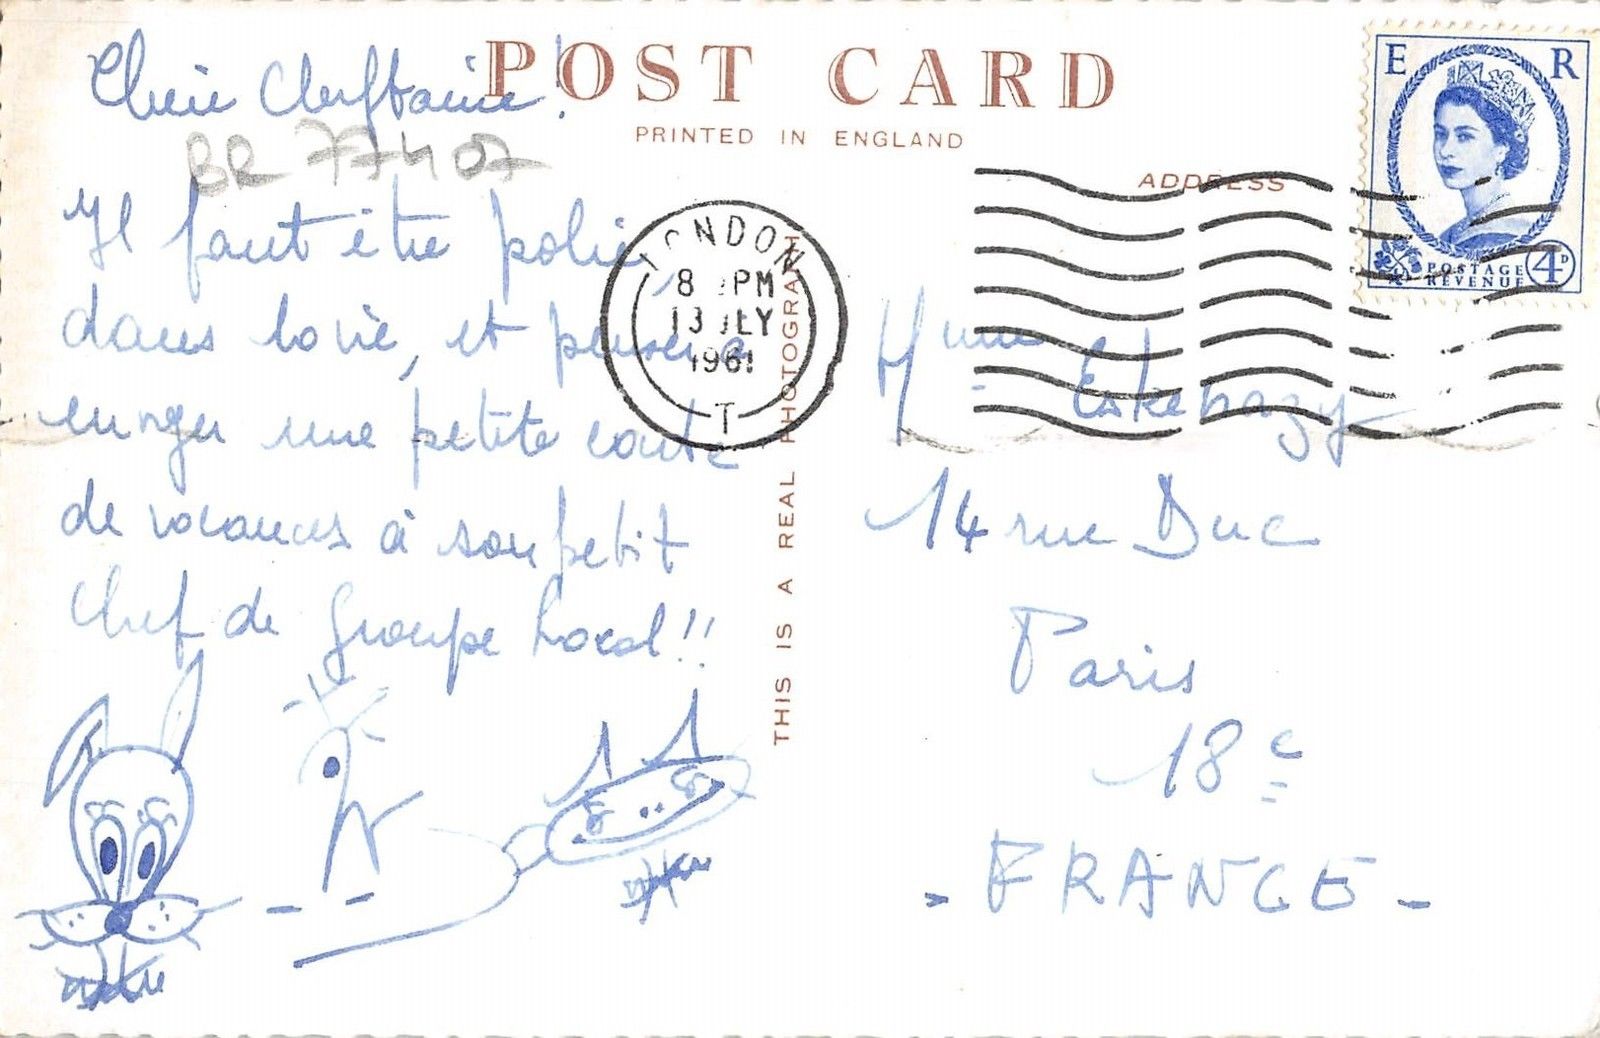 POST CARD
PRINTED IN ENGLAND
ADDRESS
THIS IS A REAL PHOTOGRAPH
E R
POSTAGE
REVENUE
4D
LONDON
8 PM
13 JLY
1961
T
BR 77407
Chère Cheftaine!
Il faut être polie,
dans la vie, et penser à
envoyer une petite carte
de vacances à son petit
Chef de Groupe Local!!
Mme
14 rue Duc
Paris
18e
- FRANCE -